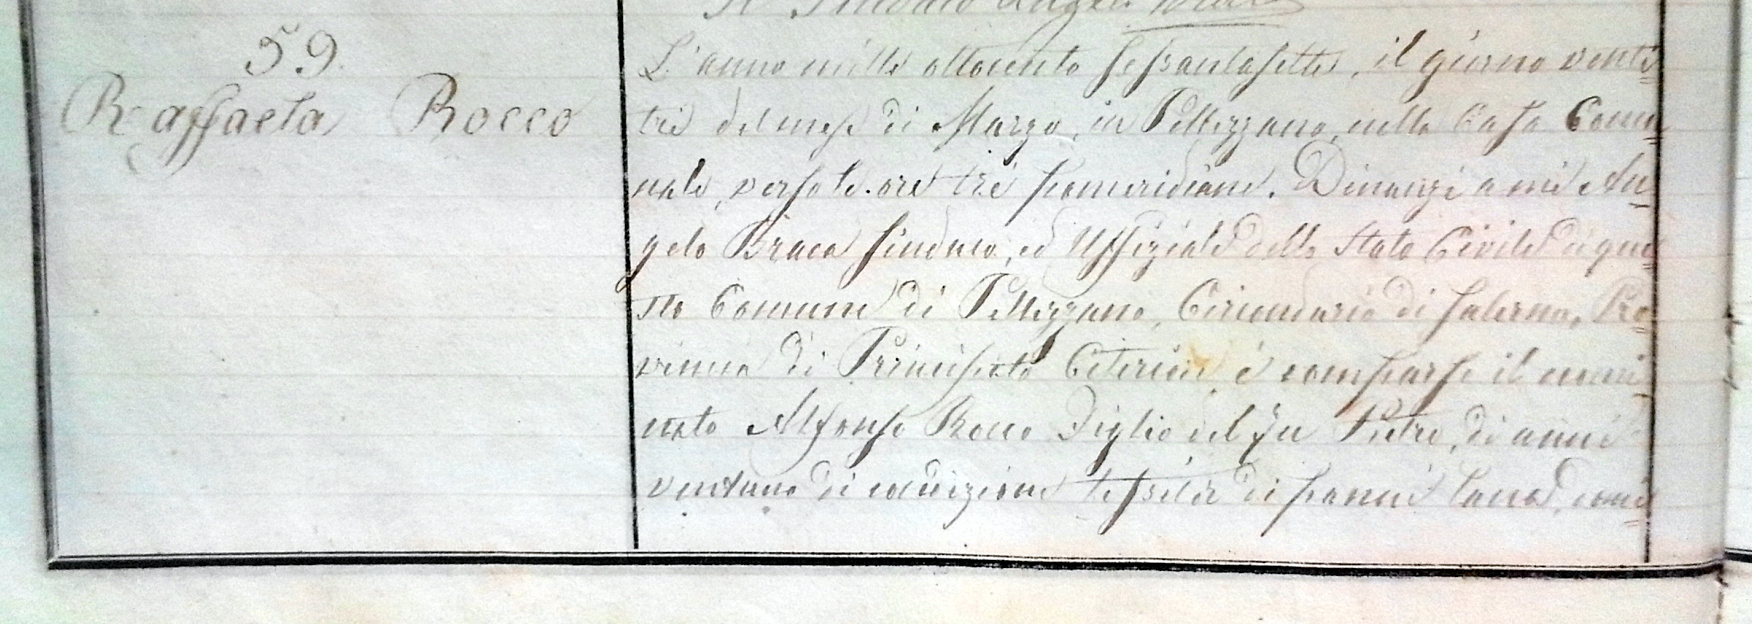 Il Sindaco Angelo Braca
59.
Raffaela Rocco
L'anno mille ottocento sessantasette, il giorno venti=
trè del mese di Marzo, in Pellezzano, nella Casa Comu=
nale, verso le ore trè pomeridiane. Dinanzi a me An=
gelo Braca Sindaco, ed Uffiziale dello Stato Civile di que=
sto Comune di Pellezzano, Circondario di Salerno, Pro=
vincia di Principato Citeriore, è comparso il nomi=
nato Alfonso Rocco Figlio del fu Pietro, di anni
ventuno di condizione tessitore di panni lana, domi=